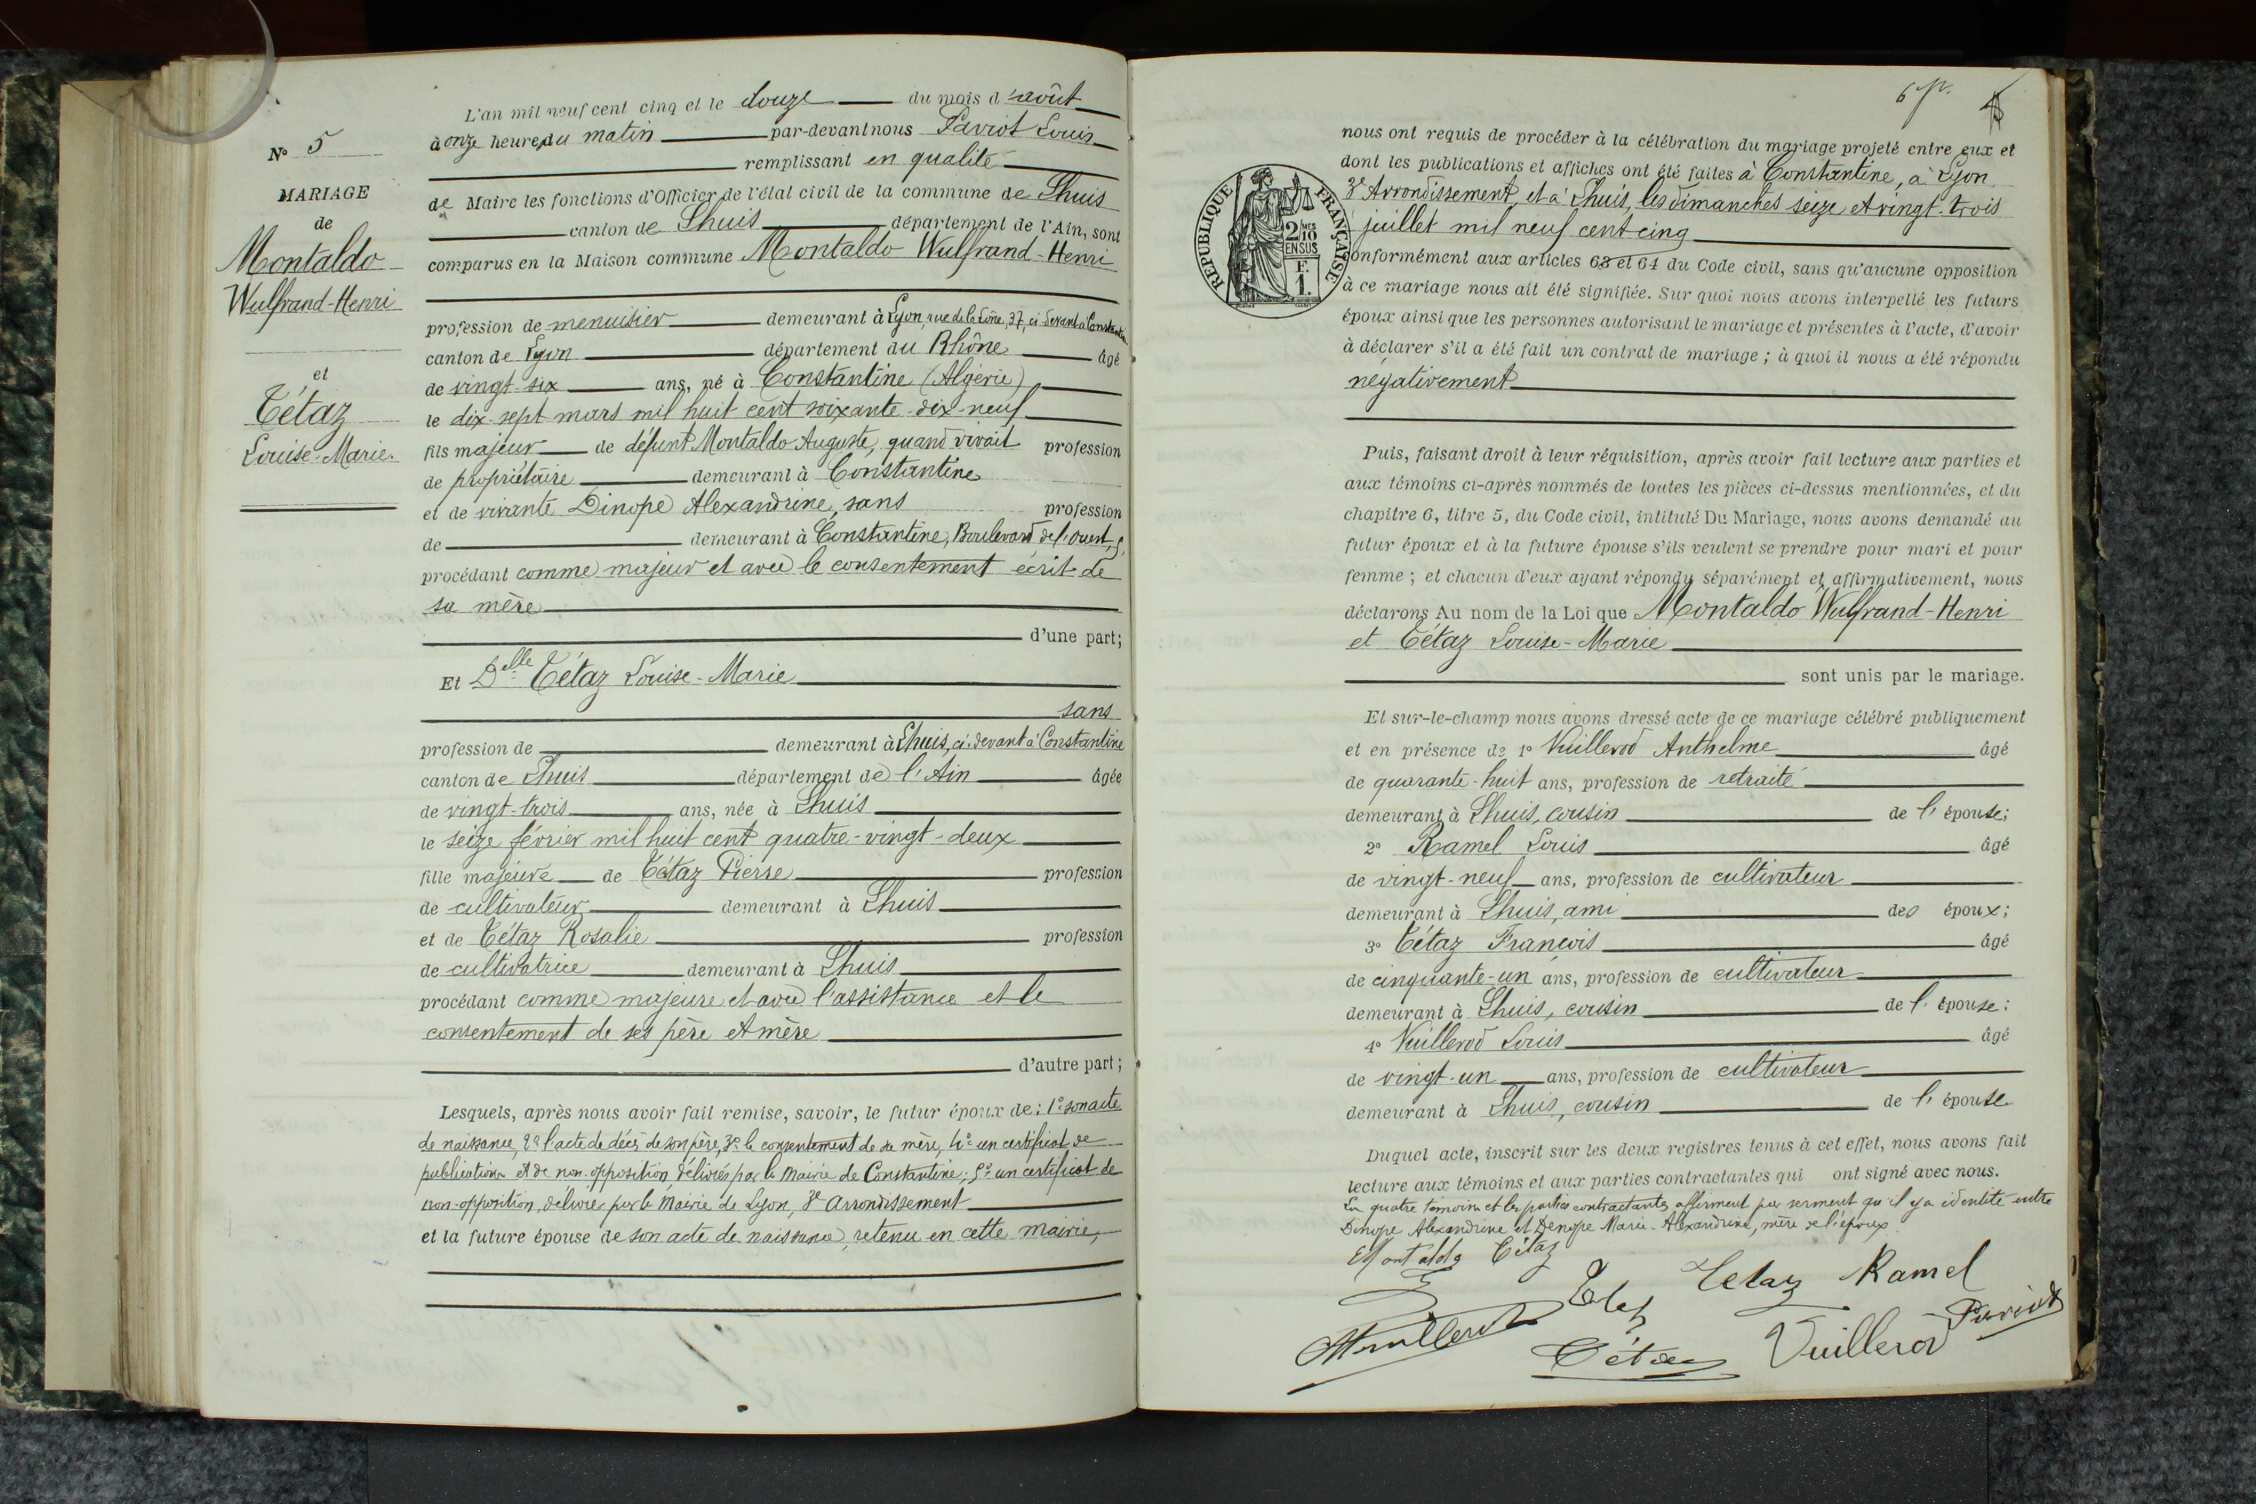 L'an mil neuf cent cinq et le douze du mois d'août
à onze heures du matin par-devant nous Paviot Louis
remplissant en qualité
de Maire les fonctions d'Officier de l'état civil de la commune de Lhuis
canton de Lhuis département de l'Ain, sont
comparus en la Maison commune Montaldo Wulfrand-Henri
profession de menuisier demeurant à Lyon, rue de la Lône, 37, ci-devant à Constantine
canton de Lyon département du Rhône âgé
de vingt-six ans, né à Constantine (Algérie)
le dix-sept mars mil huit cent soixante-dix-neuf
fils majeur de défunt Montaldo Auguste, quand vivait profession
de propriétaire demeurant à Constantine
et de vivante Dinope Alexandrine, sans profession
de demeurant à Constantine, Boulevard de l'Ouest, 5,
procédant comme majeur et avec le consentement écrit de
sa mère
d'une part;
Et Delle Tétaz Louise-Marie
sans
profession de demeurant à Lhuis, ci-devant à Constantine
canton de Lhuis département de l'Ain âgée
de vingt-trois ans, née à Lhuis
le seize février mil huit cent quatre-vingt-deux
fille majeure de Tétaz Pierre profession
de cultivateur demeurant à Lhuis
et de Tétaz Rosalie profession
de cultivatrice demeurant à Lhuis
procédant comme majeure et avec l'assistance et le
consentement de ses père et mère
d'autre part;
Lesquels, après nous avoir fait remise, savoir, le futur époux de: 1° son acte
de naissance, 2° l'acte de décès de son père, 3° le consentement de sa mère, 4° un certificat de
publication et de non-opposition, délivrés par la Mairie de Constantine; 5° un certificat de
non-opposition, délivré par la Mairie de Lyon, 3e Arrondissement
et la future épouse de son acte de naissance, retenu en cette mairie,
N° 5
MARIAGE
de
Montaldo
Wulfrand-Henri
et
Tétaz
Louise-Marie.
nous ont requis de procéder à la célébration du mariage projeté entre eux et
dont les publications et affiches ont été faites à Constantine, à Lyon
3e Arrondissement, et à Lhuis, les dimanches seize et vingt-trois
juillet mil neuf cent cinq
conformément aux articles 63 et 64 du Code civil, sans qu'aucune opposition
à ce mariage nous ait été signifiée. Sur quoi nous avons interpellé les futurs
époux ainsi que les personnes autorisant le mariage et présentes à l'acte, d'avoir
à déclarer s'il a été fait un contrat de mariage; à quoi il nous a été répondu
négativement
RÉPUBLIQUE FRANÇAISE
2 MES
10
EN SUS
F.
1.
Puis, faisant droit à leur réquisition, après avoir fait lecture aux parties et
aux témoins ci-après nommés de toutes les pièces ci-dessus mentionnées, et du
chapitre 6, titre 5, du Code civil, intitulé Du Mariage, nous avons demandé au
futur époux et à la future épouse s'ils veulent se prendre pour mari et pour
femme; et chacun d'eux ayant répondu séparément et affirmativement, nous
déclarons Au nom de la Loi que Montaldo Wulfrand-Henri
et Tétaz Louise-Marie
sont unis par le mariage.
Et sur-le-champ nous avons dressé acte de ce mariage célébré publiquement
et en présence de 1° Vuillerod Anthelme âgé
de quarante-huit ans, profession de retraité
demeurant à Lhuis, cousin de l'épouse;
2° Ramel Louis âgé
de vingt-neuf ans, profession de cultivateur
demeurant à Lhuis, ami des époux;
3° Tétaz François âgé
de cinquante-un ans, profession de cultivateur
demeurant à Lhuis, cousin de l'épouse;
4° Vuillerod Louis âgé
de vingt-un ans, profession de cultivateur
demeurant à Lhuis, cousin de l'épouse
Duquel acte, inscrit sur les deux registres tenus à cet effet, nous avons fait
lecture aux témoins et aux parties contractantes qui ont signé avec nous.
Les quatre témoins et les parties contractantes affirment par serment qu'il y a identité entre
Dinope Alexandrine et Denope Marie-Alexandrine, mère de l'époux.
Montaldo Tétaz
Tetaz Ramel
Vuillerod Tétaz Vuillerod Paviot